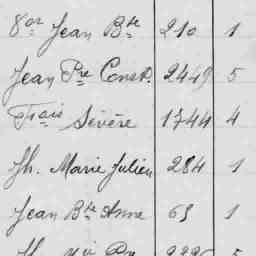 Vor Jean Bte 210 1
Jean Pre Const. 2449 5
Frais Sévère 1744 4
Jh. Marie Julien 284 1
Jean Bte Anne 69 1
Jh.